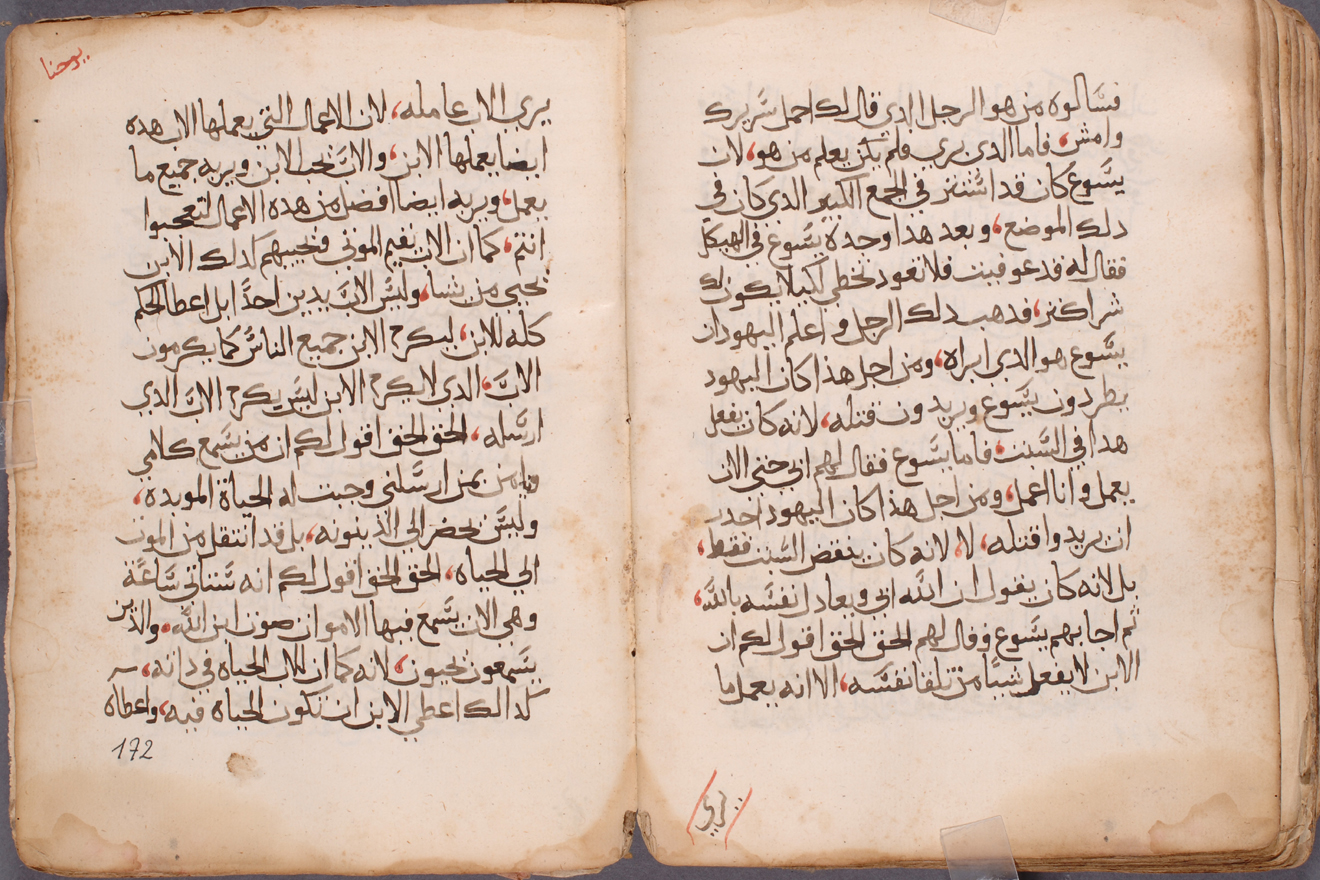 فسالوه من هو الرجل الدي قال لك احمل سريرك
وامش، فاما الدي بري فلم يكن يعلم من هو، لان
يسوع كان قد استتر في الجمع الكبير الدي كان في
دلك الموضع، وبعد هدا وجده يسوع في الهيكل
فقال له قد عوفيت فلا تعود تخطي لكيلا يكون لك
شرا كتر، فدهب دلك الرجل واعلم اليهود ان
يسوع هو الدي ابراه، ومن اجل هذا كان اليهود
يطردون يسوع ويريدون قتله، لانه كان يفعل
هدا في السبت، فاما يسوع فقال لهم ابي حتى الان
يعمل وانا اعمل، ومن اجل هذا كان اليهود احدر
ان يريدوا قتله، لا، لانه كان ينقض السبت فقط،
بل لانه كان يقول ان الله ابي ويعادل نفسه بالله،
ثم اجابهم يسوع وقال لهم الحق الحق اقول لكم ان
الابن لا يفعل شيا من تلقا نفسه، الا انه يعمل ما
يري
يوحنا
يري الاب عامله، لان الاعمال التي يعملها الاب هده
ايضا يعملها الابن، والاب يحب الابن ويريه جميع ما
يعمل، ويريه ايضا افضل من هده الاعمال لتعجبوا
انتم، كما ان الاب يقيم الموتى ويحييهم كدلك الابن
يحيي من يشا، وليس الاب يدين احدا بل اعطا الحكم
كله للابن، ليكرم الابن جميع الناس كما يكرمون
الاب، الدي لا يكرم الابن ليس يكرم الاب الدي
ارسله، الحق الحق اقول لكم ان من يسمع كلامي
ويامن بمن ارسلني وجبت له الحياة الموبده،
وليس يحضر الي الدينونه، بل قد انتقل من الموت
الي الحياه، الحق الحق اقول لكم انه ستاتي ساعة
وهي الان يسمع فيها الاموات صوت ابن الله، والذين
يسمعون يحيون، لانه كما ان للاب الحياه في داته،
كدالك اعطي الابن ان تكون الحياه فيه، واعطاه
172